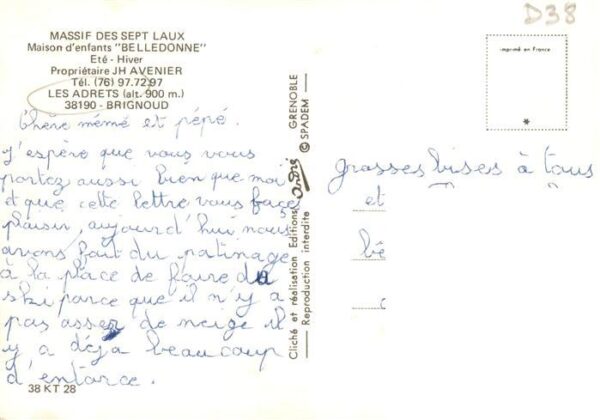 D38
MASSIF DES SEPT LAUX
Maison d'enfants "BELLEDONNE"
Eté - Hiver
Propriétaire JH AVENIER
Tél. (76) 97.72.97
LES ADRETS (alt. 900 m.)
38190 - BRIGNOUD
Chère mémé et pépé.
J'espère que vous vous
portez aussi bien que moi
et que cette lettre vous face
plaisir, aujourd'hui nous
avons fait du patinage
à la place de faire du
ski parce que il n'y a
pas asser de neige il
y a déja beaucoup
d'entorce.
38 KT 28
Cliché et réalisation Editions andre GRENOBLE
Reproduction interdite © SPADEM
imprimé en France
grosses bises à tous
et